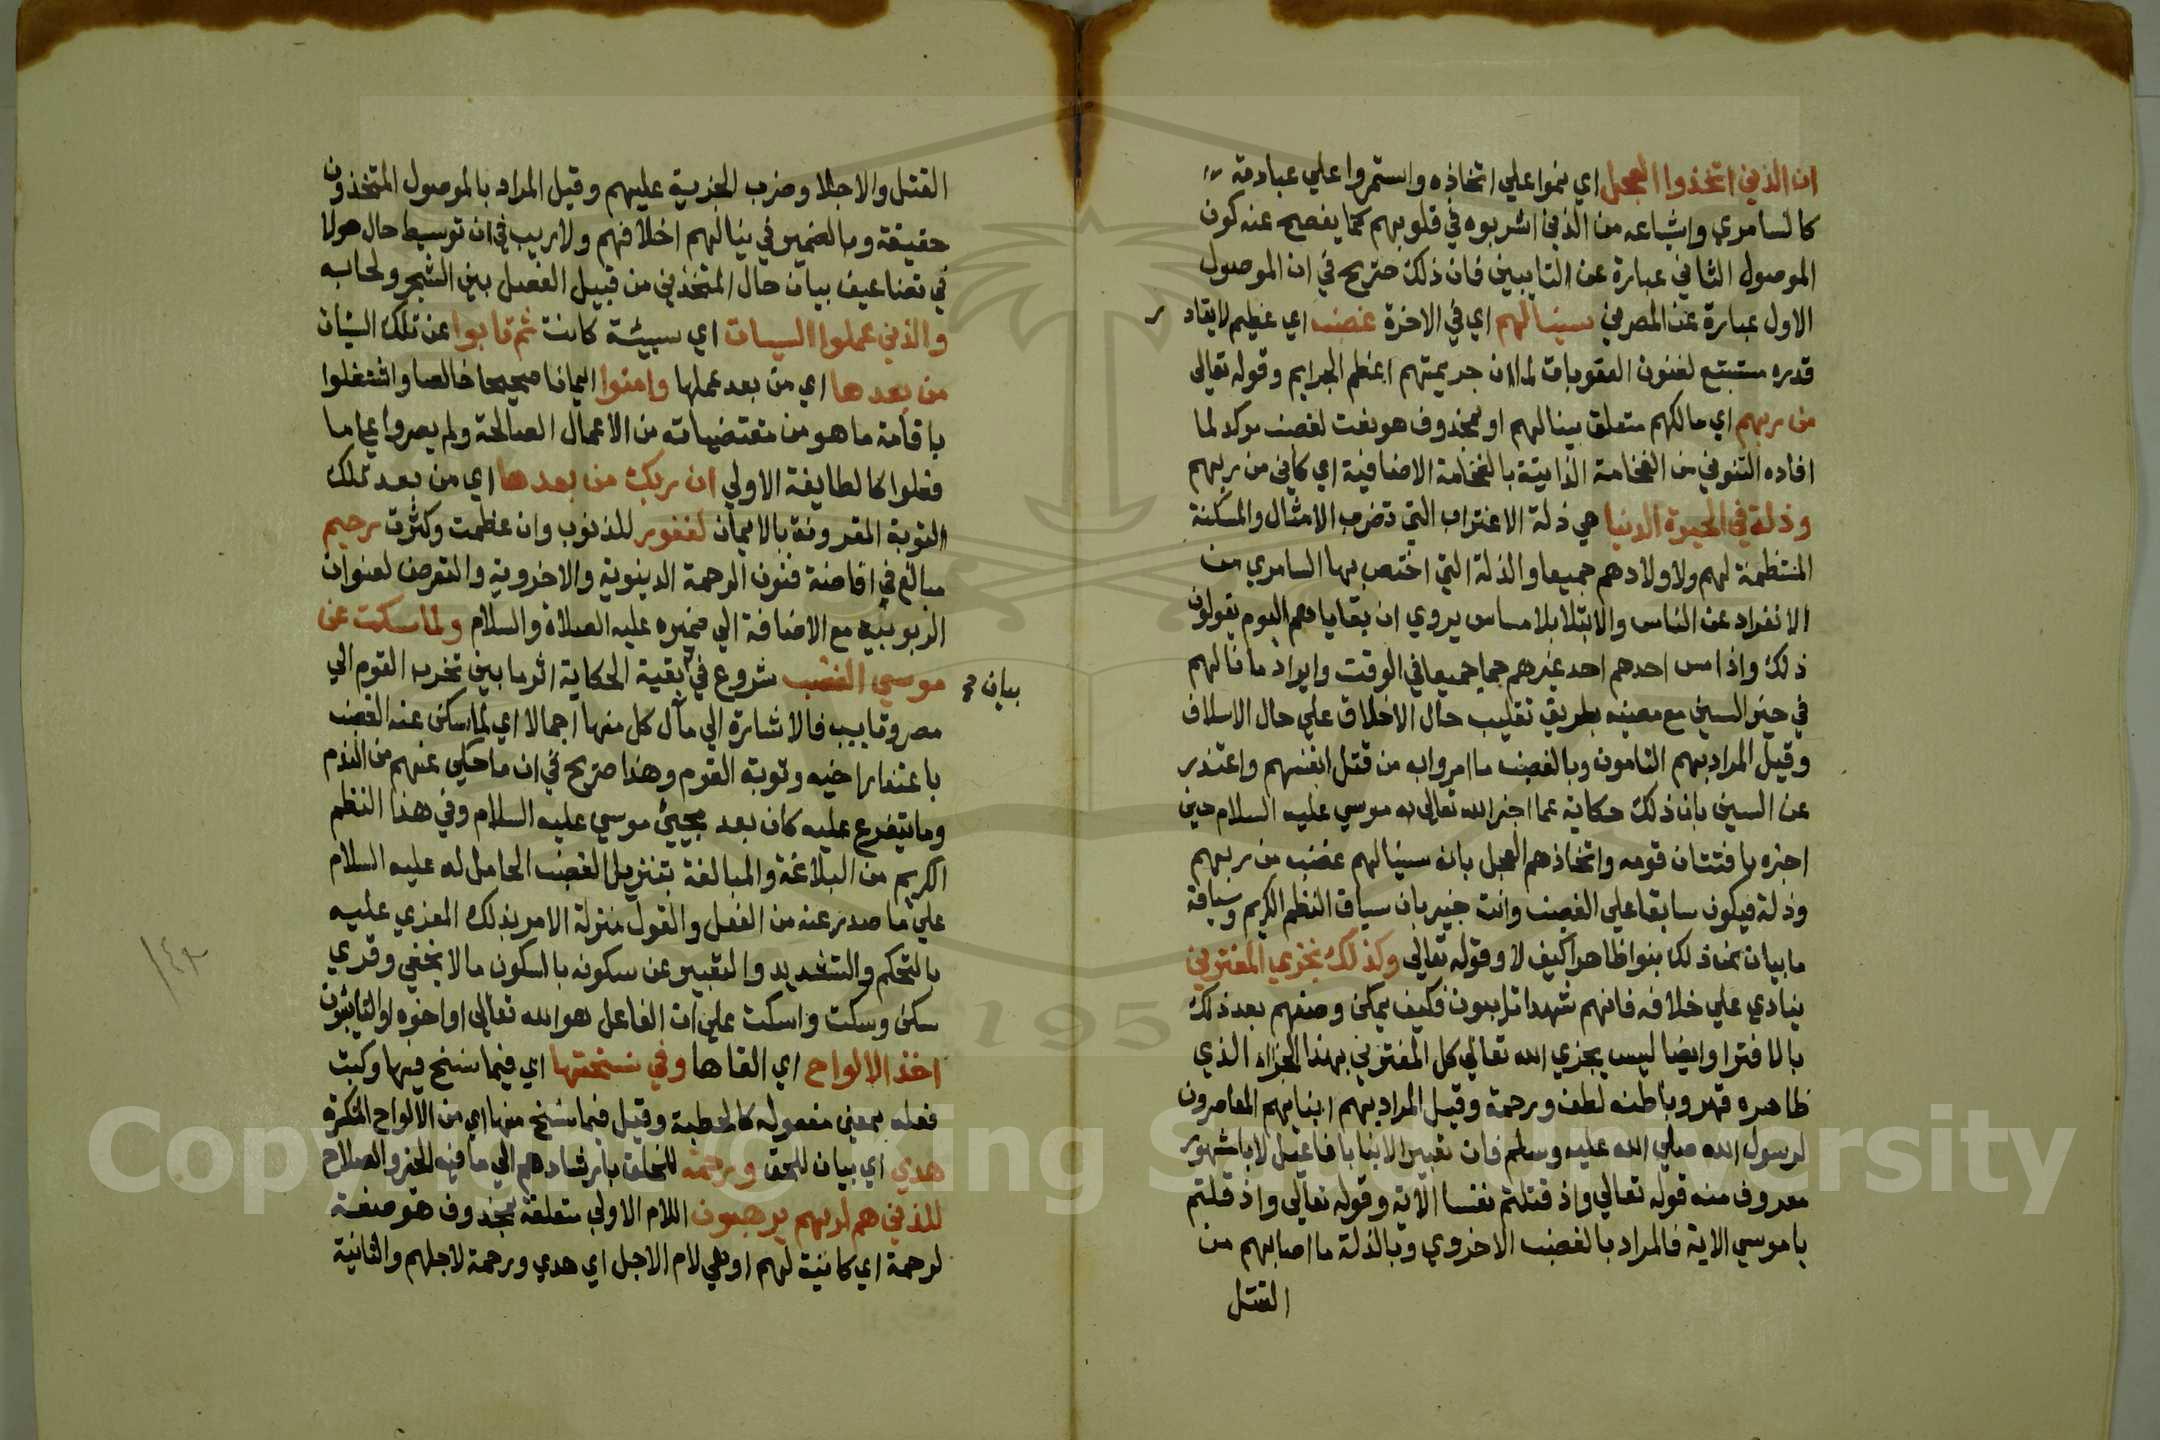 ان الذين اتخذوا العجل اي تموا علي اتخاذه واستمروا علي عبادته
كالسامري واشياعه من الذين اشربوه في قلوبهم كما يفصح عنه كون
الموصول الثاني عبارة عن التايبين فان ذلك صريح في ان الموصول
الاول عبارة عن المصرين سينالهم اي في الاخرة غضب اي عظيم لا يقاد
قدره مستتبع لفنون العقوبات لما ان جريمتهم اعظم الجرايم وقوله تعالى
من ربهم اي مالكهم متعلق بينالهم او بمحذوف هو نعت لغضب موكد لما
افاده التنوين من الفخامة الذاتية بالفخامة الاضافية اي كاين من ربهم
وذلة في الحيوة الدنيا هي ذلة الاغتراب التي تضرب الامثال والمسكنة
المنتظمة لهم ولاولادهم جميعا والذلة التي اختص بها السامري من
الانفراد عن الناس والابتلا بلا مساس يروي ان بقاياهم اليوم يقولون
ذلك واذا مس احدهم احد غيرهم حما جميعا في الوقت وايراد ما نالهم
في حيز السين مع مضيه بطريق تغليب حال الاخلاق علي حال الاسلاف
وقيل المراد بهم التابون وبالغضب ما امروا به من قتل انفسهم واعتذر
عن السين بان ذلك حكاية عما اخبر الله تعالى به موسي عليه السلام حين
اخبره بافتتان قومه واتخاذهم العجل بانه سينالهم غضب من ربهم
وذلة فيكون سابقا علي الغضب وانت خبير بان سياق النظم الكريم وسباقه
مابيان عن ذلك بنوا ظاهرا كيف لا وقوله تعالى وكذلك نجزي المفترين
ينادي علي خلافه فانهم شهدا تايبون فكيف يمكن وصفهم بعد ذلك
بالافترا وايضا ليس يجزي الله تعالي كل المفترين بهذا الجزاء الذي
ظاهره قهر وباطنه لطف ورحمة وقيل المراد بهم ابنايهم المعاصرون
لرسول الله صلي الله عليه وسلم فان تعيير الابنا بافاعيل الابا مشهور
معروف منه قوله تعالي واذ قتلتم نفسا الاية وقوله تعالى واذ قلتم
يا موسي الاية فالمراد بالغضب الاخروي وبالذلة ما اصابهم من
القتل
القتل والاجلا وضرب الجزية عليهم وقيل المراد بالموصول المتخذون
حقيقة وبالضمير في ينالهم اخلافهم ولا ريب في ان توسيط حال هولا
في تضاعيف بيان حال المتخذين من قبيل الفصل بين الشجر ولحايه
والذين عملوا السيات اي سيئة كانت ثم تابوا عن تلك السيات
من بعدها اي من بعد عملها وامنوا ايمانا صحيحا خالصا واشتغلوا
باقامة ما هو من مقتضياته من الاعمال الصالحة ولم يصروا علي ما
فعلوا كالطايفة الاولي ان ربك من بعدها اي من بعد تلك
التوبة المقرونة بالايمان لغفور للذنوب وان عظمت وكثرت رحيم
مبالغ في افاضة فنون الرحمة الدينوية والاخروية والتعرض لعنوان
الربوبية مع الاضافة الي ضميره عليه الصلاة والسلام ولما سكت عن
موسي الغضب شروع في بقية الحكاية اثر ما بين تحزب القوم الي
بيان
مصر وتايب فالاشارة الي مآل كل منها اجمالا اي لما سكن عنه الغضب
باعتذار اخيه وتوبة القوم وهذا صريح في ان ما حكي عنهم من الندم
وما يتفرع عليه كان بعد مجيئ موسي عليه السلام وفي هذا النظم
الكريم من البلاغة والمبالغة بتنزيل الغضب الحامل له عليه السلام
علي ما صدر عنه من الفعل والقول منزلة الامر بذلك المغري عليه
بالتحكم والتشديد والتعبير عن سكونه بالسكون ما لا يخفي وقري
سكن وسكت واسكت علي ان الفاعل هو الله تعالى او اخوه او التايبون
اخذ الالواح اي القاها وفي نسختها اي فيما نسخ فيها وكتب
فعله بمعني مفعوله كالخطبة وقيل فيما نسخ منها اي من الالواح المتكسرة
هدي اي بيان للحق ورحمة للخلق بارشادهم الي ما فيه الخير والصلاح
للذين هم لربهم يرهبون اللام الاولي متعلقة بمحذوف هو صفة
لرحمة اي كائنة لهم او هي لام الاجل اي هدي ورحمة لاجلهم والثانية
Copyright © King Saud University
195